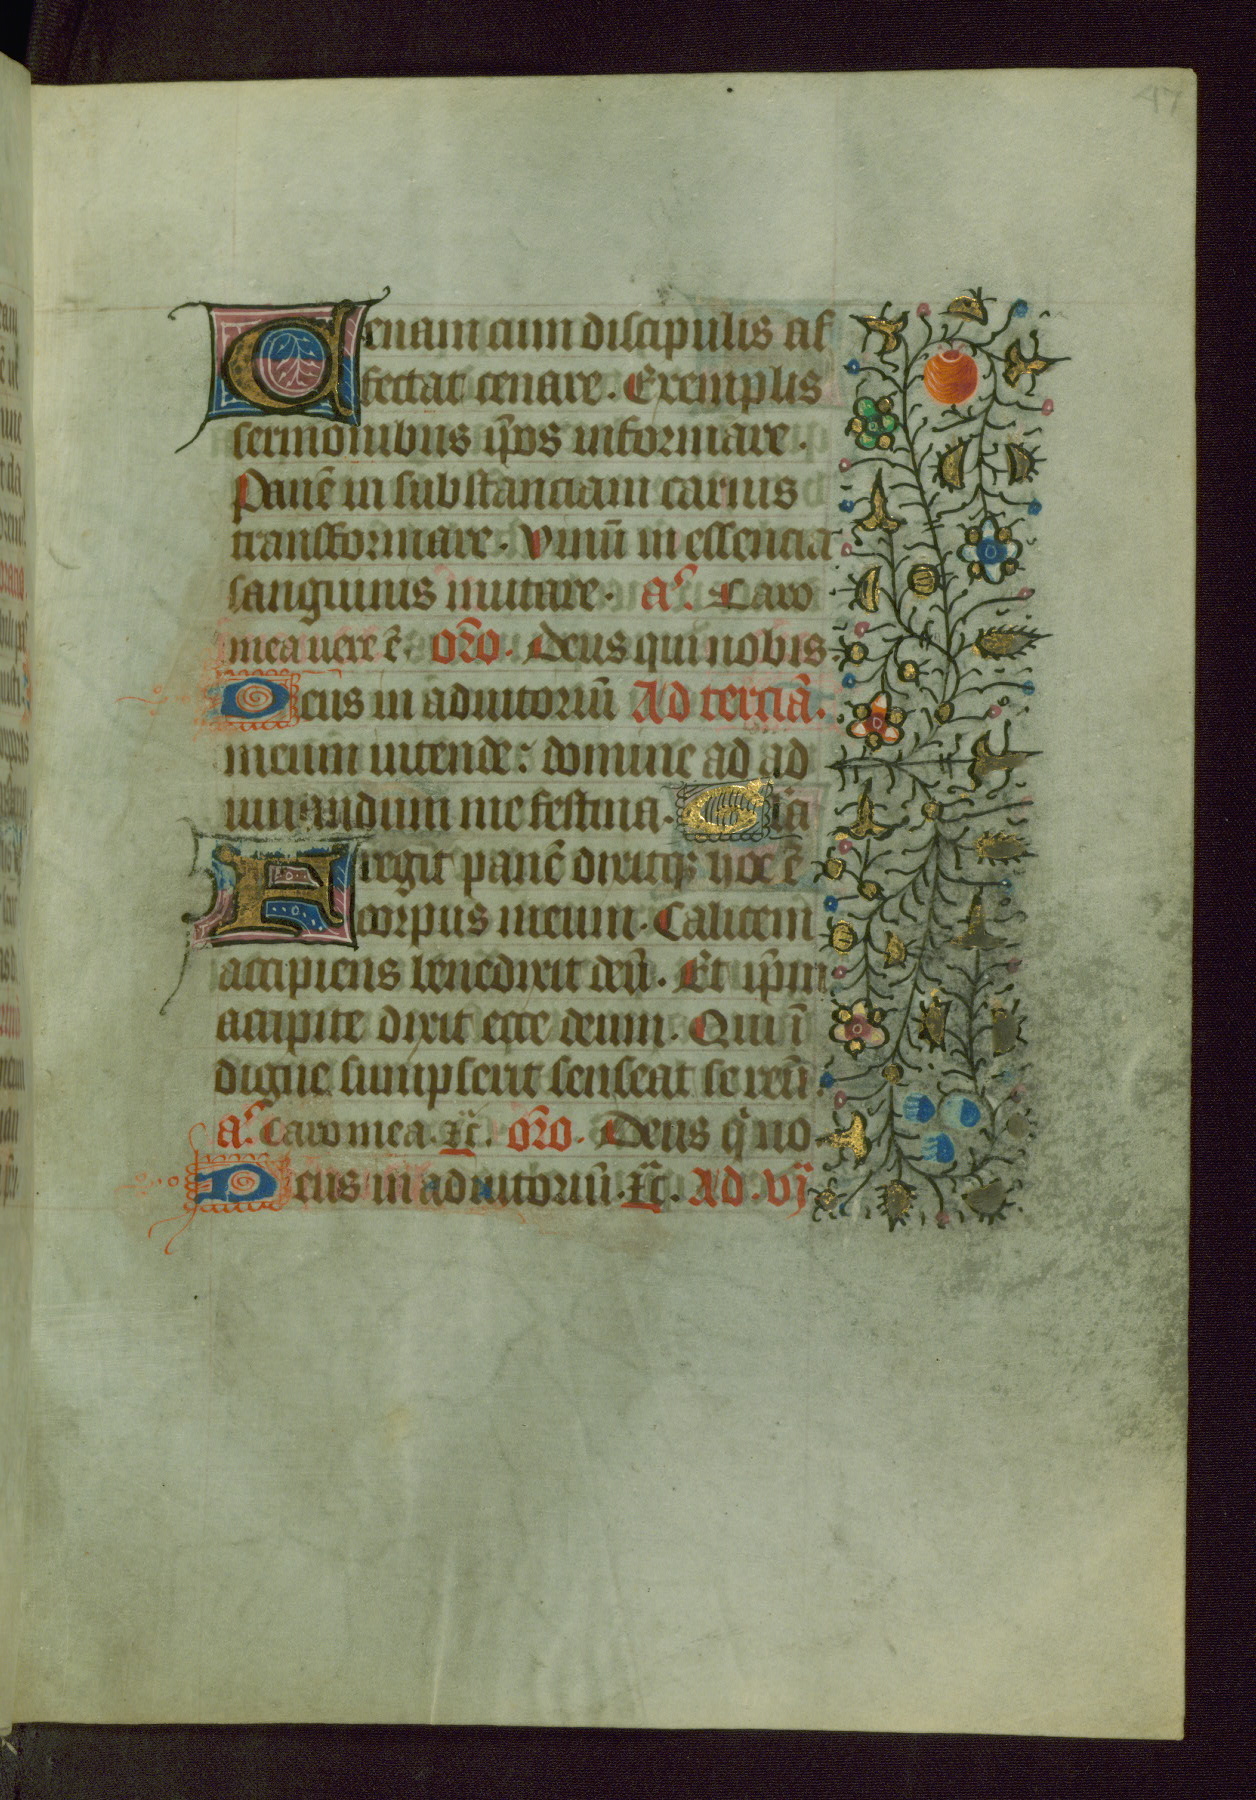 47
Cenam cum discipulis af
fectat cenare. Exemplis
sermonibus ip̄os informare.
Panē in substanciam carnis
transformare. Vinū in essencia
sanguinis mutare. a͛. Caro
mea vere ē. or̄o. Deus qui nobis.
Deus in adiutoriū Ad terciā.
meum intende: domine ad ad
iuuandum me festina. Gl̄ia
Fregit panē dixitqꝫ hoc ē
corpus meum. Calicem
accipiens benedixit deū. Et ip̄m
accipite dixit ecce deum. Qui ī
digne sumpserit senseat se reū.
a͛. Caro mea. ⁊c̄. or̄o. Deus qͥ no
Deus in adiutoriū. ⁊c̄. Ad. vj